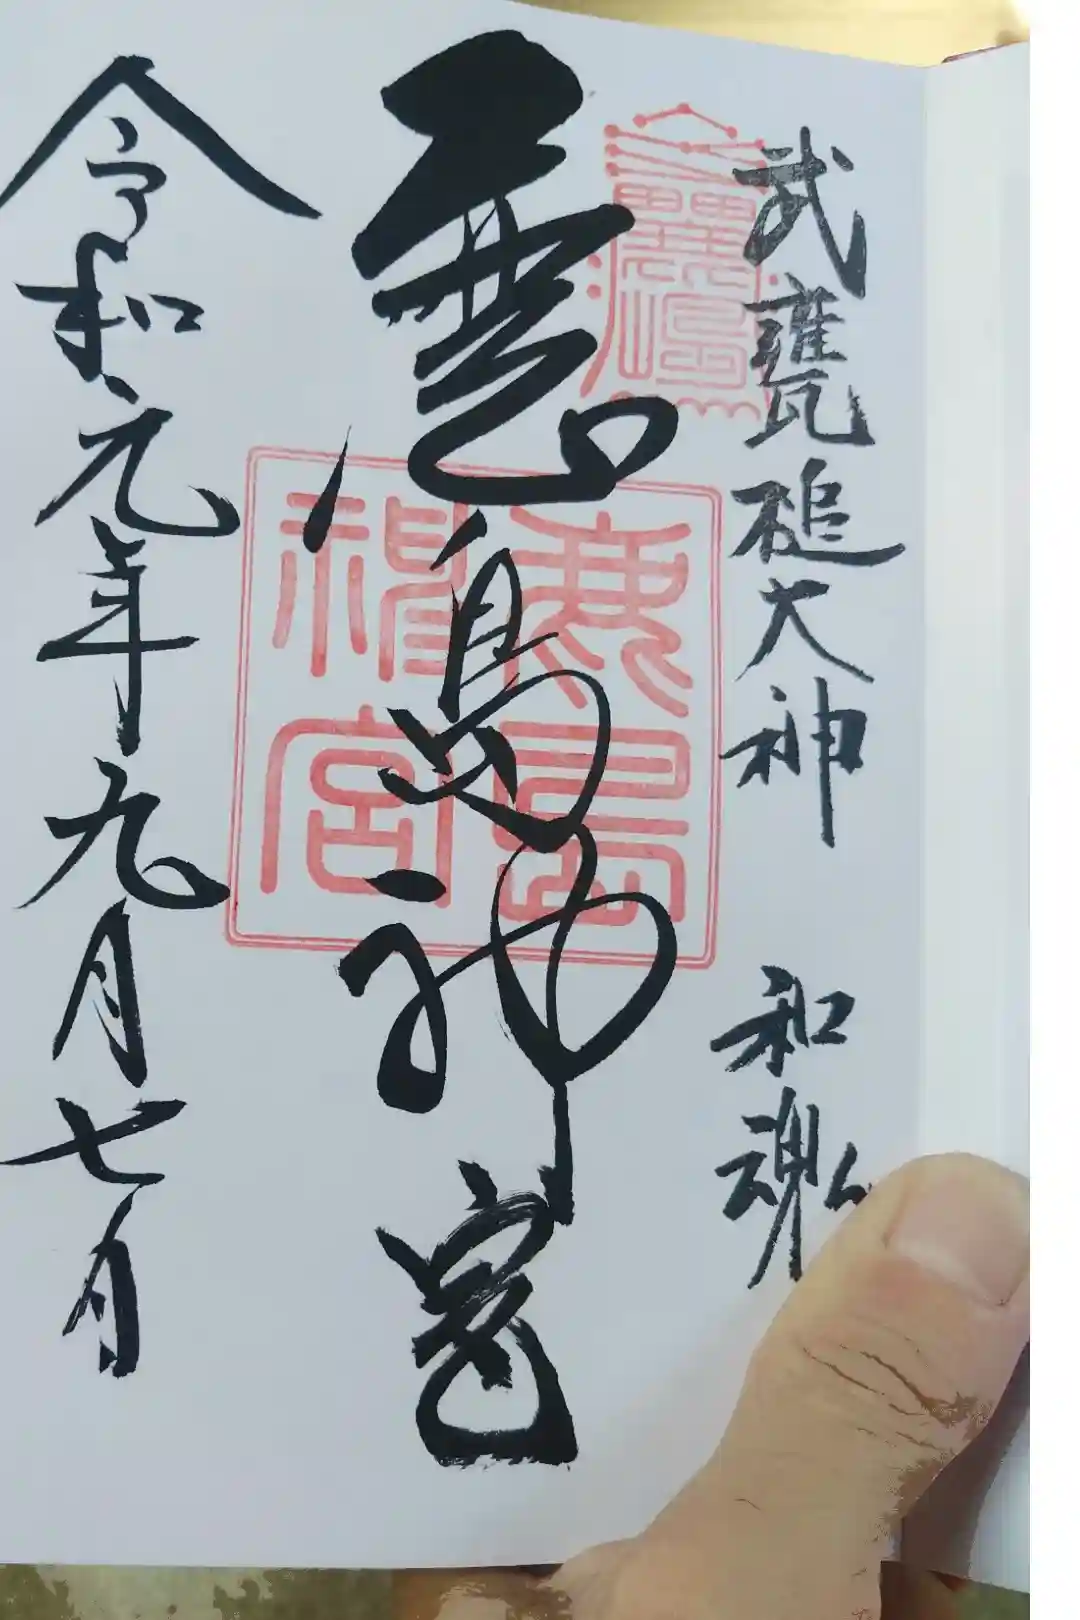 武甕槌大神 和魂
鹿島神宮
鹿島
神宮
令和元年九月七月